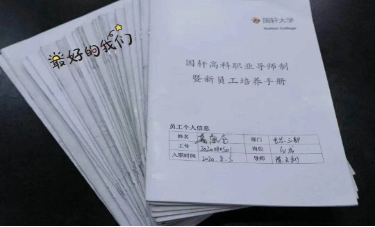 国轩大学
最好的我们
国轩高科职业导师制
暨新员工培养手册
员工个人信息
姓名 部门
工号 岗位
入职时间 2020.8.5 导师